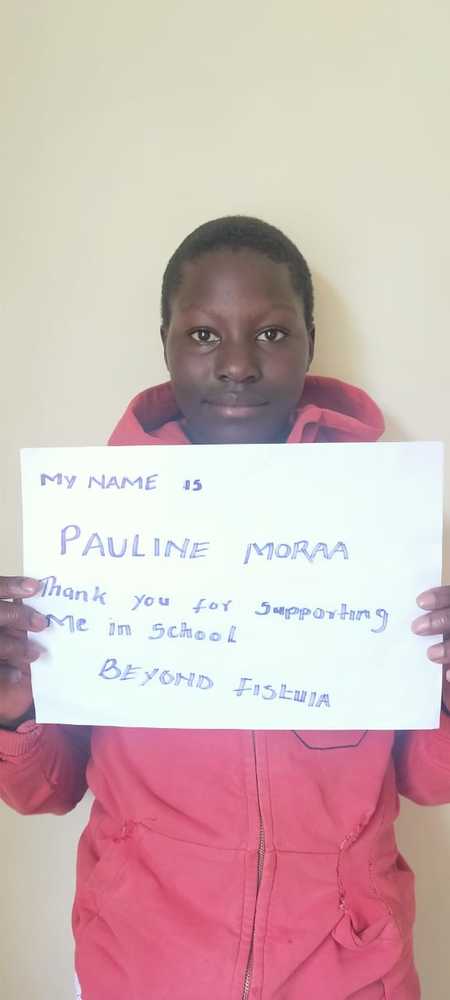 MY NAME is
PAULINE MORAA
Thank you for supporting
Me in school
BEYOND FISTULA